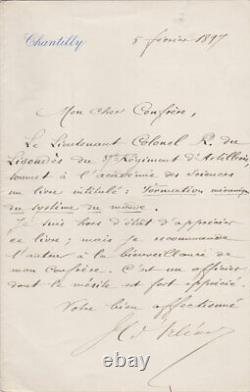 Chantilly
5 février 1897
Mon cher Confrère,
Le Lieutenant Colonel R. du
Ligondès du Régiment d'Artillerie,
soumet à l'académie des Sciences
un livre intitulé : Formation mécanique
du système du monde.
Je suis hors d'état d'apprécier
ce livre ; mais je recommande
l'auteur à la bienveillance de
mon confrère. C'est un officier
dont le mérite est fort apprécié.
Votre bien affectionné